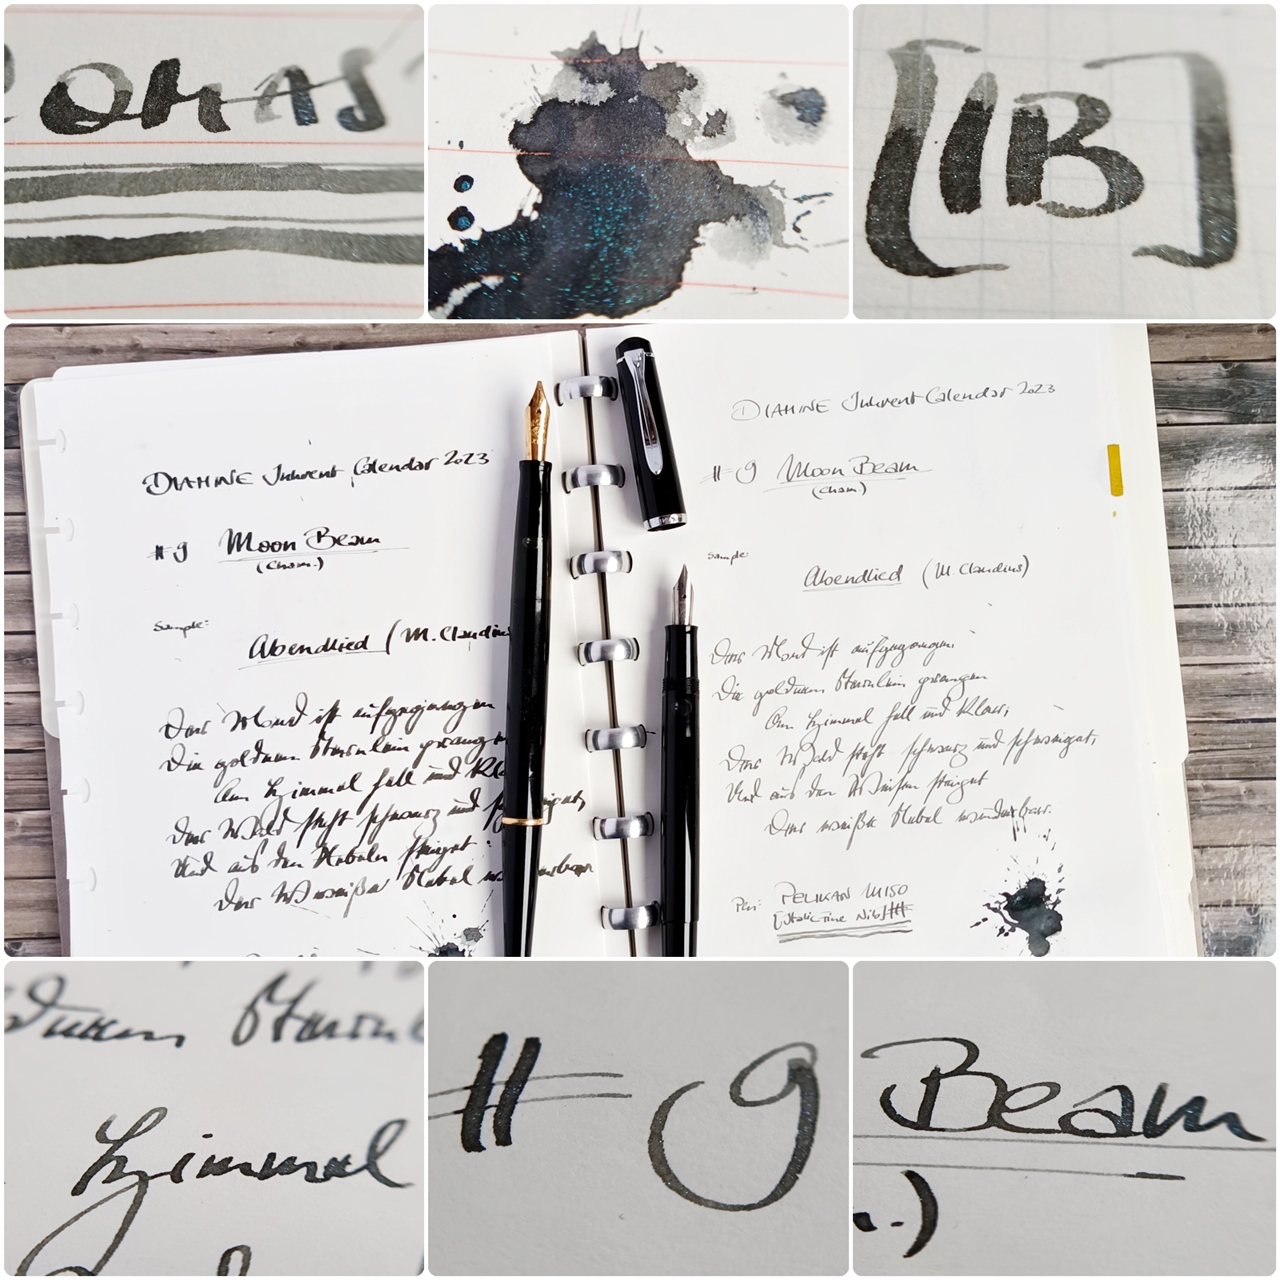 OMAS
[IB]
DIAMINE Inkvent Calendar 2023
#9 Moon Beam
(Cham.)
Sample:
Abendlied (M. Claudiu
Der Mond ist aufgegangen
Die goldnen Sternlein prangen
Am Himmel hell und kla
Der Wald steht schwarz und sch iget,
Und aus den Nebeln steiget
Der weiße Nebel wu erbar
DIAMINE Inkvent Calendar 2023
#9 Moon Beam
(Cham)
Sample:
Abendlied (M. Claudius)
Der Mond ist aufgegangen
Die goldnen Sternlein prangen
Am Himmel hell und klar;
Der Wald steht schwarz und schweiget,
Und aus den Wiesen steiget
Der weiße Nebel wunderbar.
Pen: PELIKAN M150
[Italic Fine Nib]
ldnen Sternl
Himmel
#9
Beam
.)